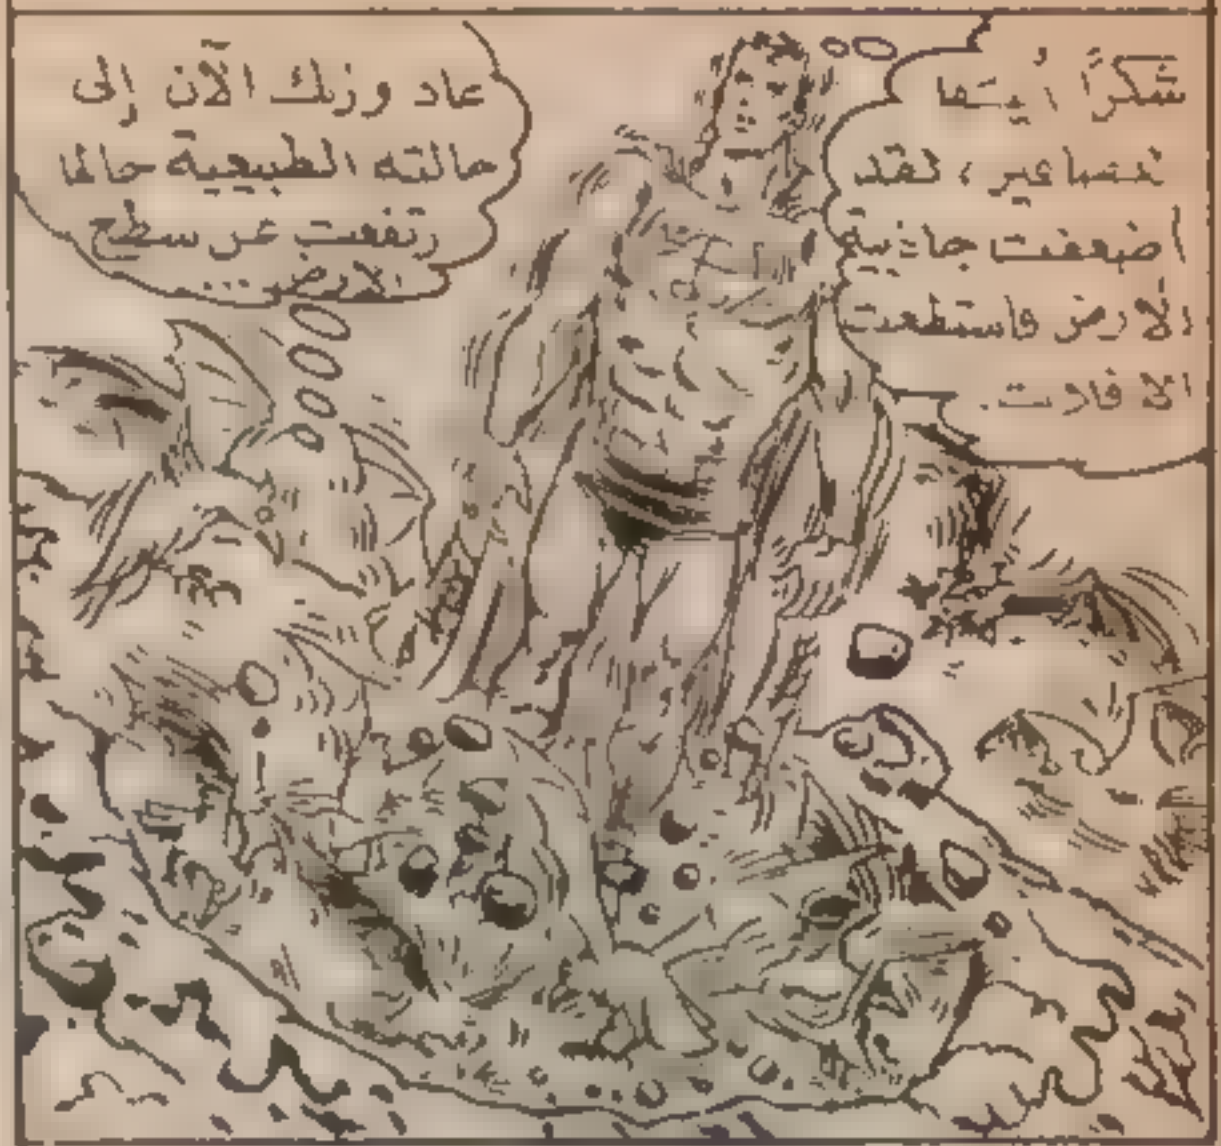 شكرًا أيتها
نساعير، لقد
اضعفت جاذبية
الأرض فاستطعت
الافلات.
عاد وزنك الآن إلى
حالته الطبيعية حالما
رتفعت عن سطح
الارض...